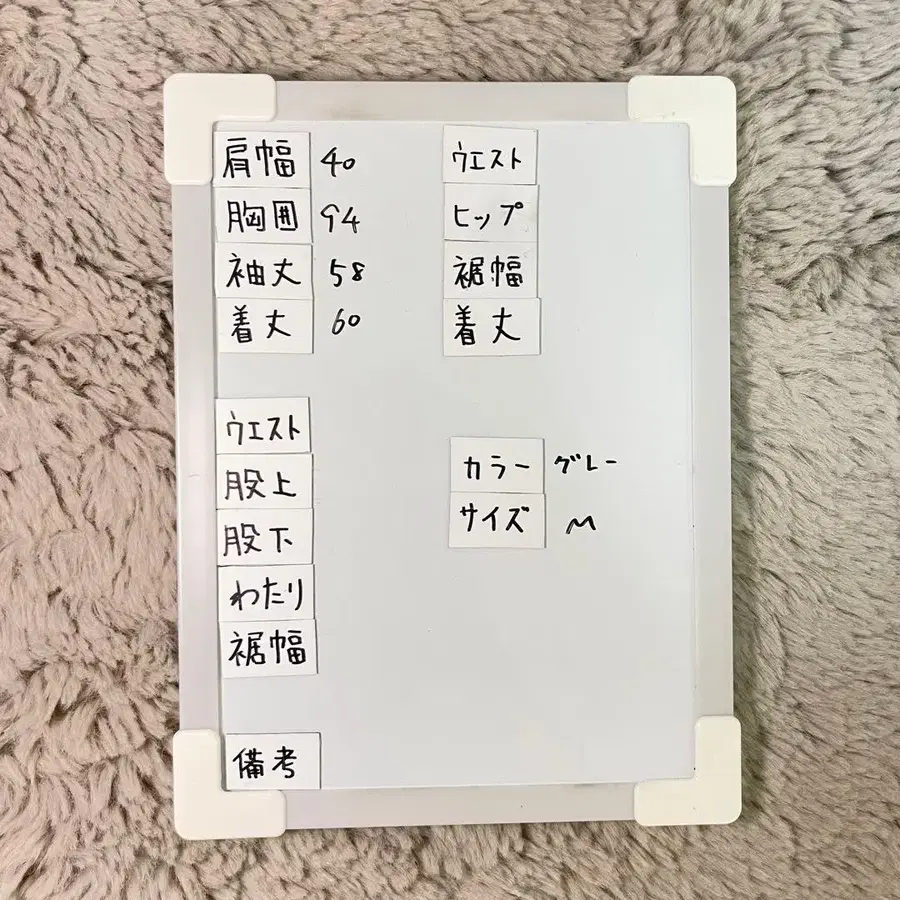 肩幅 40
胸囲 94
袖丈 58
着丈 60
ウエスト
股上
股下
わたり
裾幅
備考
ウエスト
ヒップ
裾幅
着丈
カラー グレー
サイズ M